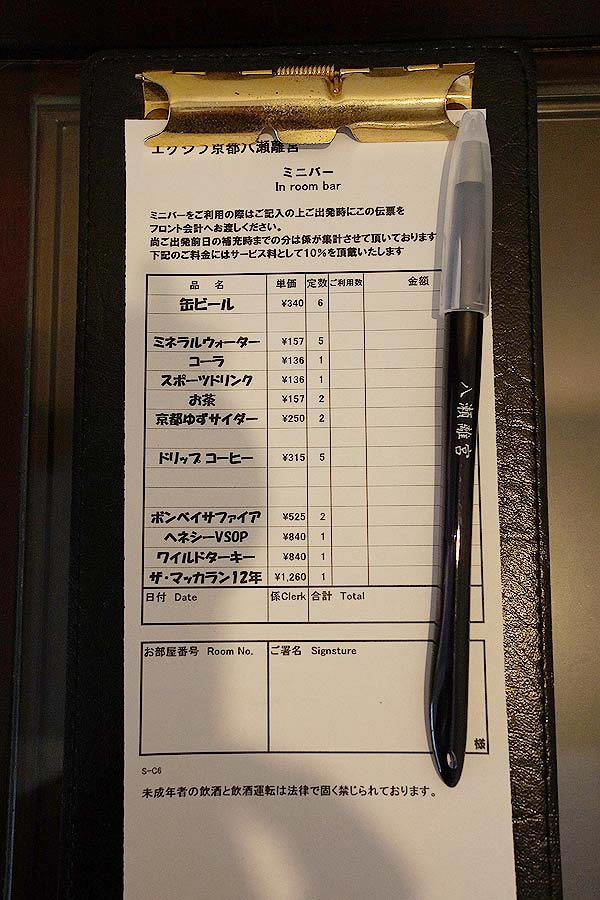 エクシブ京都八瀬離宮
ミニバー
In room bar
ミニバーをご利用の際はご記入の上ご出発時にこの伝票を
フロント会計へお渡しください。
尚ご出発前日の補充時までの分は係が集計させて頂いております
下記のご料金にはサービス料として10%を頂戴いたします
品名 単価 定数 ご利用数 金額
缶ビール ¥340 6
ミネラルウォーター ¥157 5
コーラ ¥136 1
スポーツドリンク ¥136 1
お茶 ¥157 2
京都ゆずサイダー ¥250 2
ドリップコーヒー ¥315 5
ボンベイサファイア ¥525 2
ヘネシーVSOP ¥840 1
ワイルドターキー ¥840 1
ザ・マッカラン12年 ¥1,260 1
日付 Date 係Clerk 合計 Total
お部屋番号 Room No. ご署名 Signsture
様
S-C6
未成年者の飲酒と飲酒運転は法律で固く禁じられております。
八瀬離宮